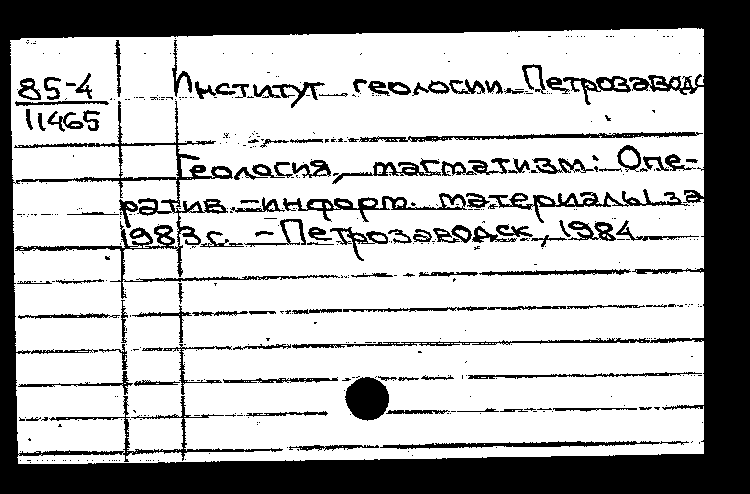 85-4
11465
Институт геологии. Петрозаводс
Геология, магматизм: Опе-
ратив.-информ. материалы за
1983г. - Петрозаводск, 1984